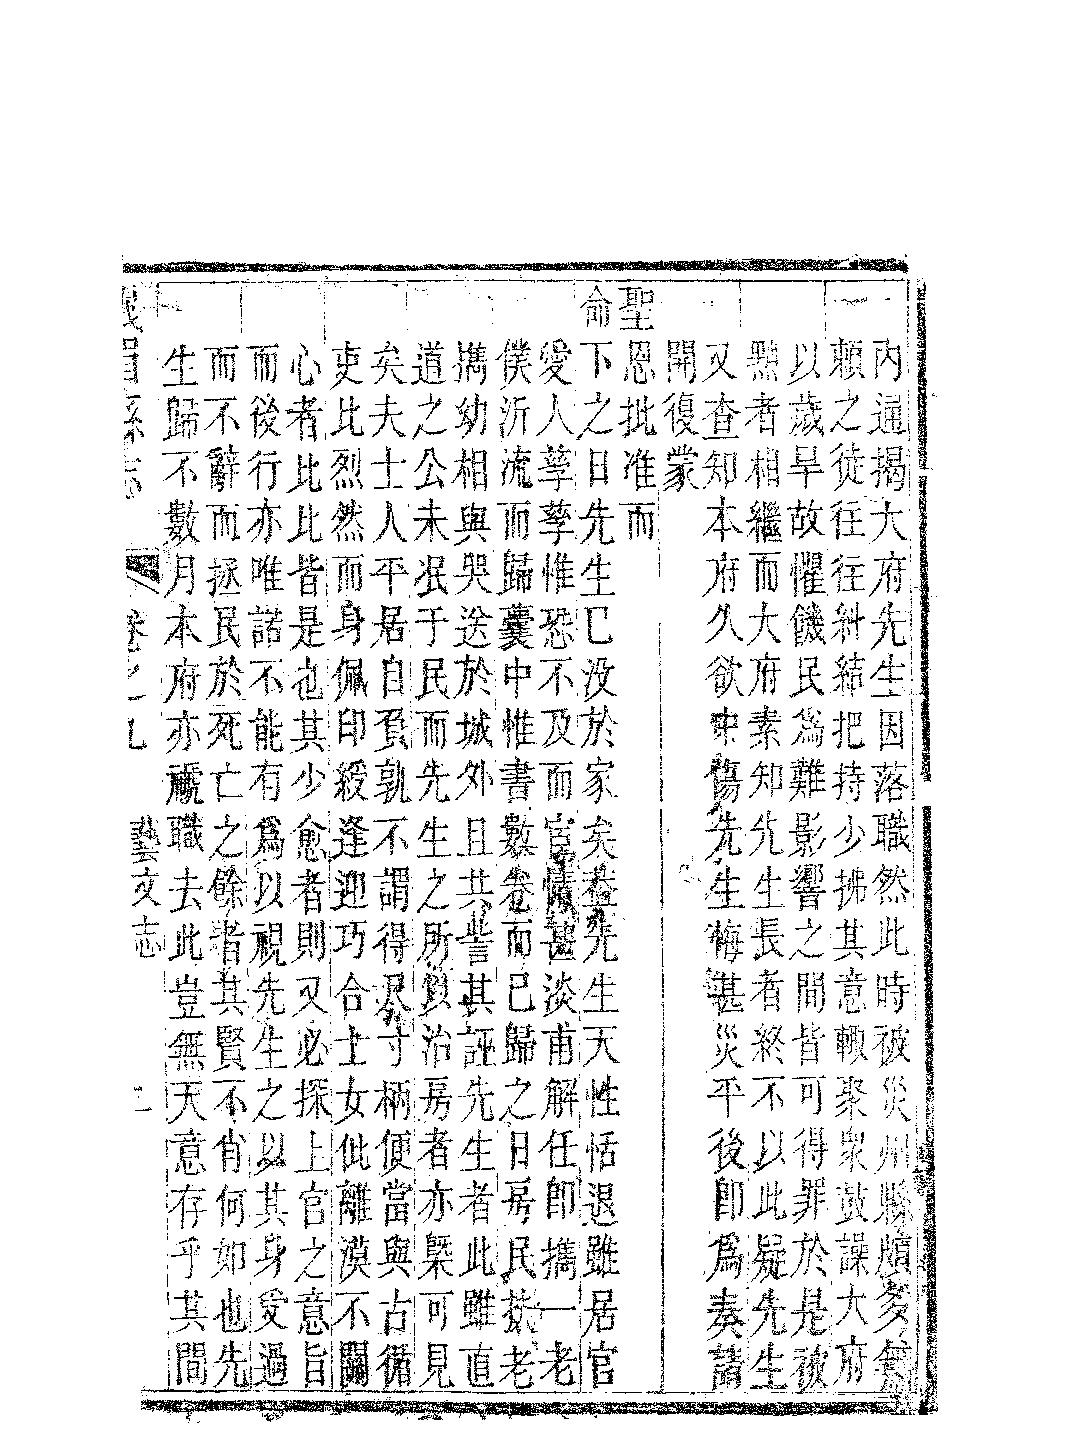 內逼揭大府先生因落職然此時被災州縣頗多無
賴之徒往往糾結把持少拂其意輒聚衆鼓譟大府
以歲旱故懼饑民爲難影響之間皆可得罪於是被
黜者相繼而大府素知先生長者終不以此疑先生
又查知本府久欲中傷先生悔甚災平後即爲奏請
開復蒙
聖恩批准而
命下之日先生已没於家矣蓋先生天性恬退雖居官
愛人孳孳惟恐不及而宦情甚淡甫解任即攜一老
僕沂流而歸囊中惟書數卷而已歸之日房民扶老
擕幼相與哭送於城外且共訾其誣先生者此雖直
道之公未泯于民而先生之所以治房者亦槩可見
矣夫士人平居自負孰不謂得尺寸柄便當與古循
吏比烈然而身佩印綬逢迎巧合士女仳離漠不關
心者比比皆是也其少愈者則又必探上官之意旨
而後行亦唯諾不能有爲以視先生之以其身受過
而不辭而拯民於死亡之餘者其賢不肖何如也先
生歸不數月本府亦褫職去此豈無天意存乎其間
縣志 卷之九 藝文志